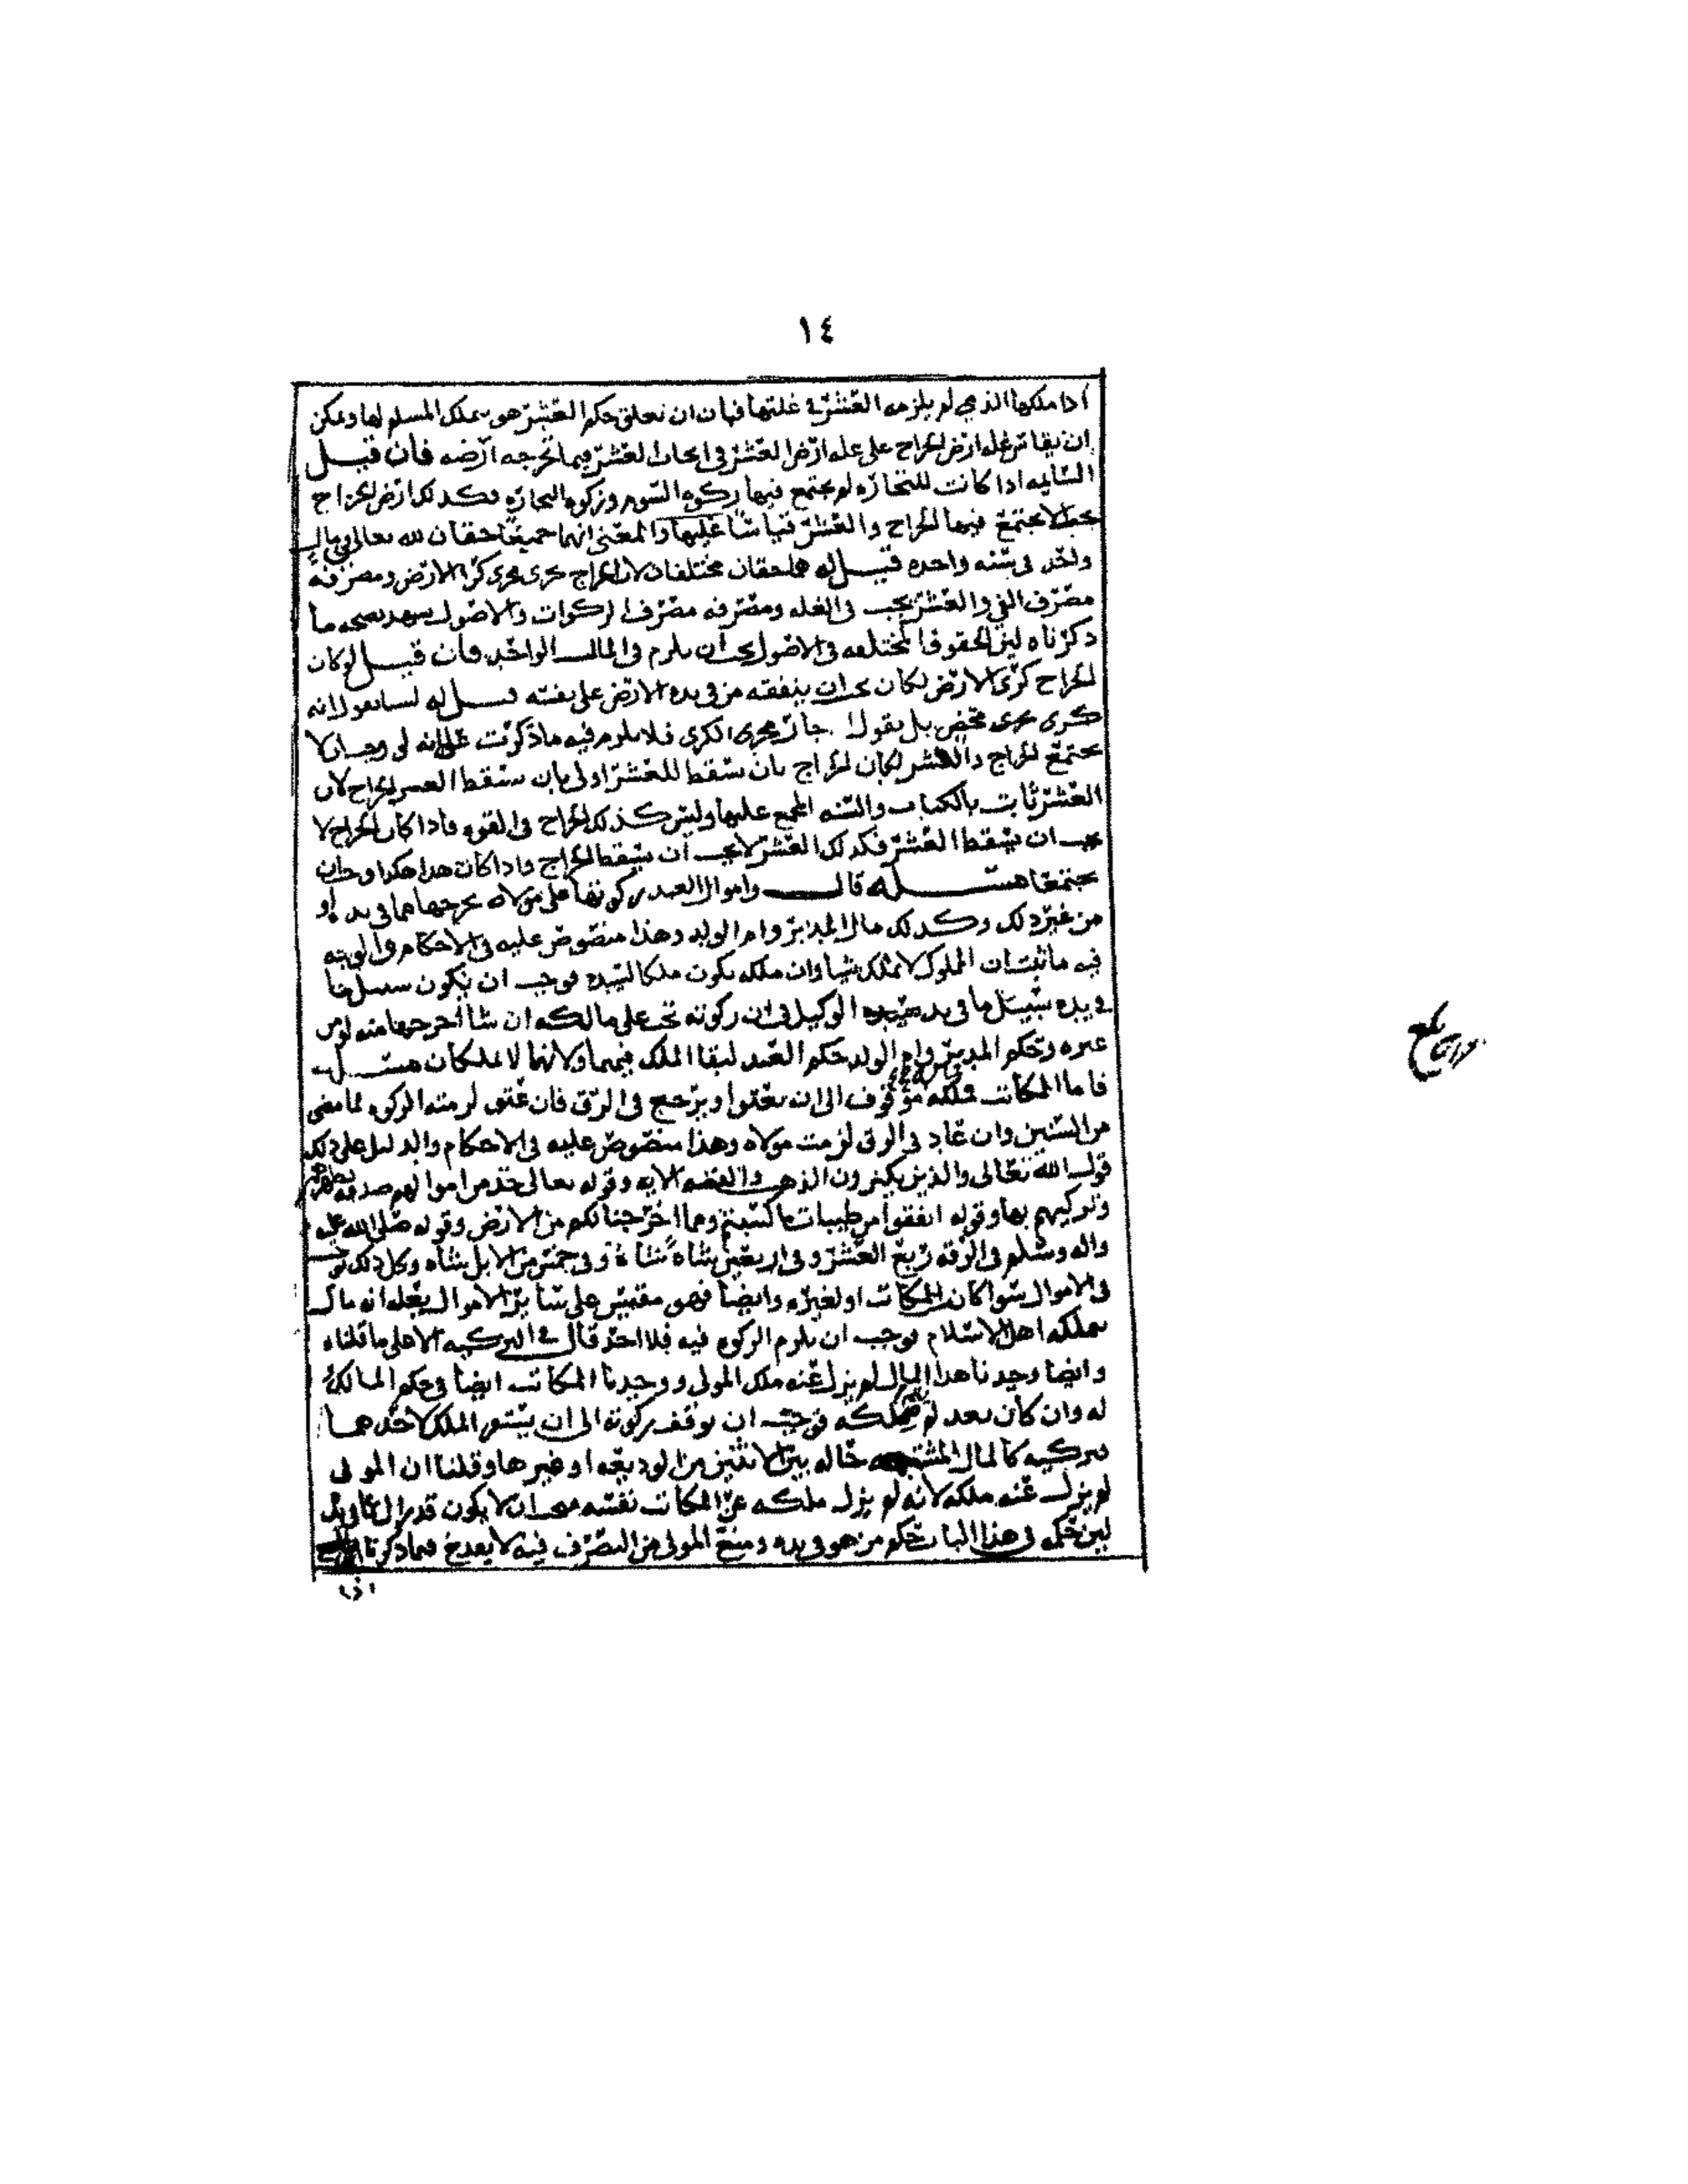 ١٤
اذا ملكها الذمي لم يلزمه العشر في غلتها فبان ان تعلق حكم العشر هو بملك المسلم لها ويمكن
ان يقاس غله ارض الخراج على غله ارض العشر في ايجاب العشر فيما تخرجه ارضه فان قيل
السايمه اذا كانت للتجاره لم يجتمع فيها زكوه السوم وزكوه التجاره فكذلك ارض الخراج
يجب الا يجتمع فيها الخراج والعشر قياسا عليها والمعنى انهما جميعا حقان لله تعالى في مال
واحد في سنه واحده قيل له هما حقان مختلفان لان الخراج يجرى مجرى كرى الارض ومصرفه
مصرف الفي والعشر يجب في الغله ومصرفه مصرف الزكوات والاصول يشهد بصحه ما
ذكرناه لين الحقوق المختلفه في الاصول يجب ان يلزم في المال الواحد فان قيل لو كان
الخراج كرى الارض لكان يجب ان ينفقه من في يده الارض على نفسه قيل له لسنا نقول انه
كرى محض بل نقول جار مجرى الكرى فلا يلزم فيه ما ذكرت على انه لو وجب ان لا
يجتمع الخراج والعشر لكان الخراج بان يسقط للعشر اولى بان يسقط العشر للخراج لان
العشر ثابت بالكتاب والسنه المجمع عليها وليس كذلك الخراج في القوه فاذا كان الخراج لا
يجب ان يسقط العشر فكذلك العشر لا يجب ان يسقط الخراج واذا كان هذا هكذا وجب ان
يجتمعا مسئله قال واموال العبد زكوتها على مولاه يخرجها مما في يده او
من غير ذلك وكذلك مال المدبر وام الولد وهذا منصوص عليه في الاحكام والوجه
فيه ما ثبت ان المملوك لا يملك شيا وان ملكه يكون ملكا لسيده فوجب ان يكون سبيل ما
في يده سبيل ما في يد الوكيل في ان زكوته تجب على مالكه ان شا اخرجها منه او من
غيره وحكم المدبر وام الولد حكم العبد لبقا الملك فيهما ولانهما لا يملكان مسئله
فاما المكاتب فملكه موقوف الى ان يعتق او يرجع في الرق فان عتق لزمته الزكوه لما مضى
من السنين وان عاد في الرق لزمت مولاه وهذا منصوص عليه في الاحكام والدليل على ذلك
قول الله تعالى والذين يكنزون الذهب والفضه الايه وقوله تعالى خذ من اموالهم صدقه تطهرهم
وتزكيهم بها وقوله انفقوا من طيبات ما كسبتم ومما اخرجنا لكم من الارض وقوله صلى الله عليه
واله وسلم في الرقه ربع العشر وفي اربعين شاه شاة وفي خمس من الابل شاه وكل ذلك يوجب
في الاموال سوا كان للمكاتب او لغيره وايضا فهو مقيس على سائر الاموال بعله انه مال
يملكه اهل الاسلام فوجب ان يلزم الزكوه فيه فلا احد قال في الا على ما قلناه
وايضا وجدنا هذا المال لم يزل عنه ملك المولى ووجدنا المكاتب ايضا في حكم المالك
له وان كان بعد لم يملكه فوجب ان يوقف زكوته الى ان يستقر الملك لاحدهما
فيزكيه كالمال المشتبه حاله بين الاثنين من الوديعه او غيرها وقلنا ان المولى
لم يزل عنه ملكه لانه لم يزل ملكه عن المكاتب نفسه فيجب ان لا يكون قد زال عما في يده
لين حكمه في هذا الباب حكم من هو في يده ومنع المولى من التصرف فيه لا يقدح فيما ذكرنا